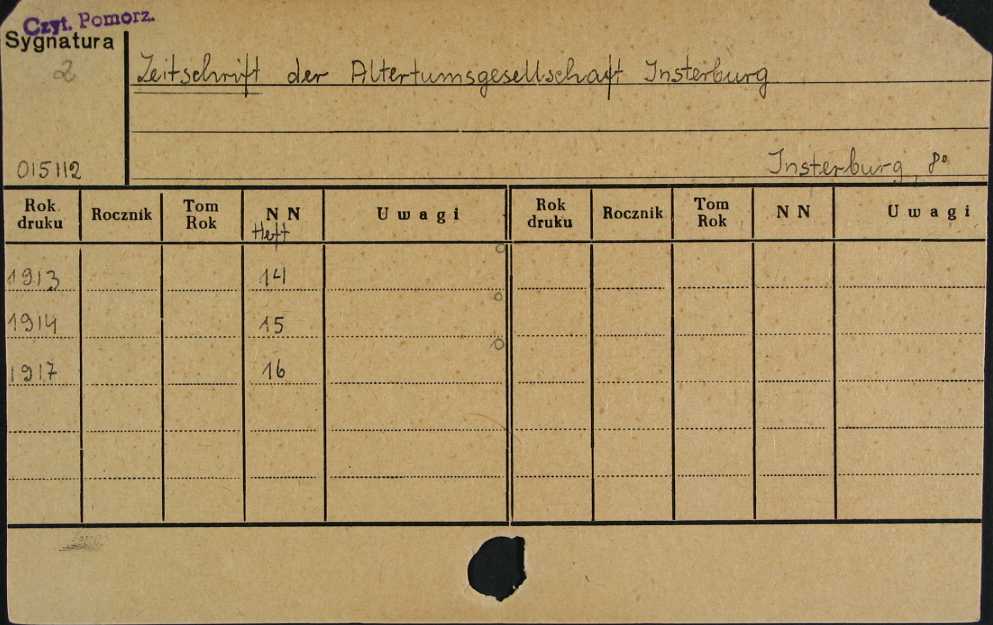 Czyt. Pomorz.
Sygnatura
2
Zeitschrift der Altertumsgesellschaft Insterburg
015112
Insterburg, 8°
Rok druku Rocznik Tom Rok NN Heft Uwagi Rok druku Rocznik Tom Rok NN Uwagi
1913 14
1914 15
1917 16